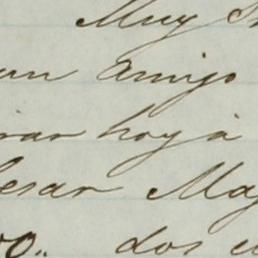 Muy S
un Amigo
rar hoy á
esar May
00.. dos